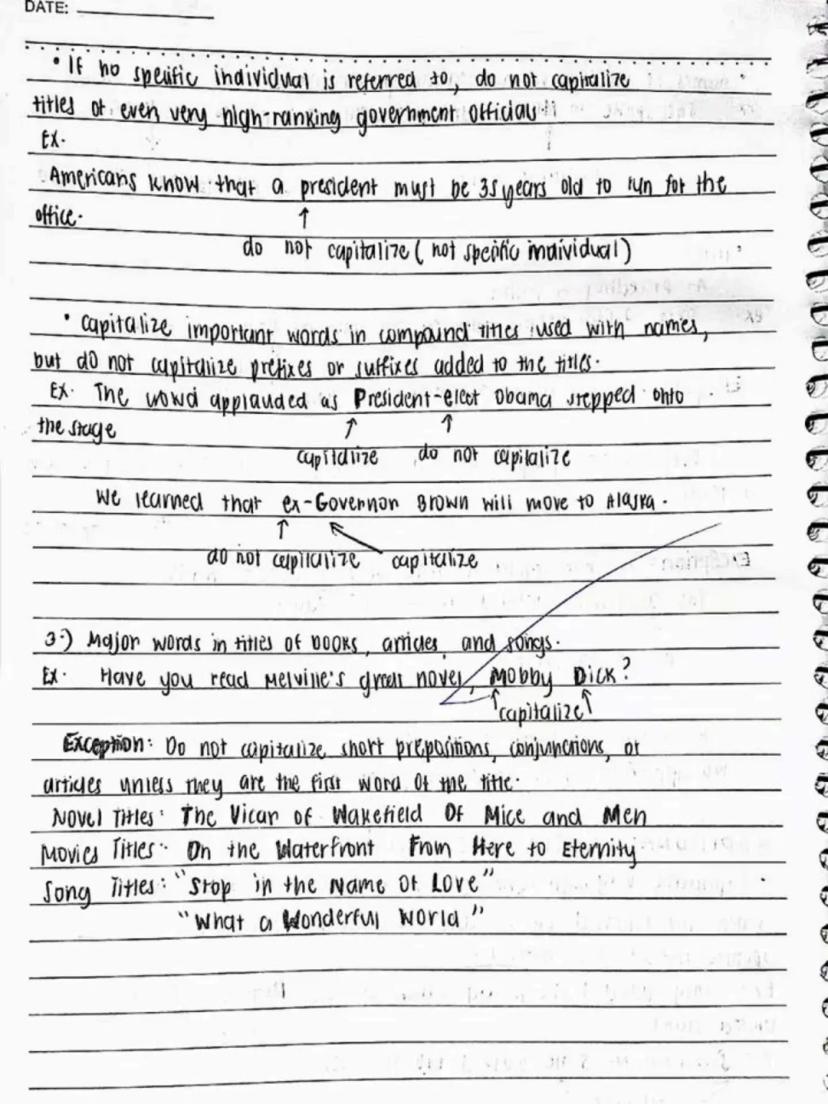 DATE:
• If no specific individual is referred to, do not capitalize
titles of even very high-ranking government officials
Ex.
Americans know that a president must be 35 years old to run for the
office.
↑
do not capitalize (not specific individual)
• Capitalize important words in compound titles used with names,
but do not capitalize prefixes or suffixes added to the titles.
Ex. The crowd applauded as President-elect Obama stepped onto
the stage
↑ ↑
capitalize do not capitalize
We learned that ex-Governor Brown will move to Alaska.
do not capitalize capitalize
3.) Major words in titles of books, articles, and songs.
Ex. Have you read Melville's great novel, Mobby Dick?
↑capitalize↑
Exception: Do not capitalize short prepositions, conjunctions, or
articles unless they are the first word of the title.
Novel Titles: The Vicar of Wakefield Of Mice and Men
Movies Titles: On the Waterfront From Here to Eternity
Song Titles: "Stop in the Name Of Love"
"What a Wonderful World"